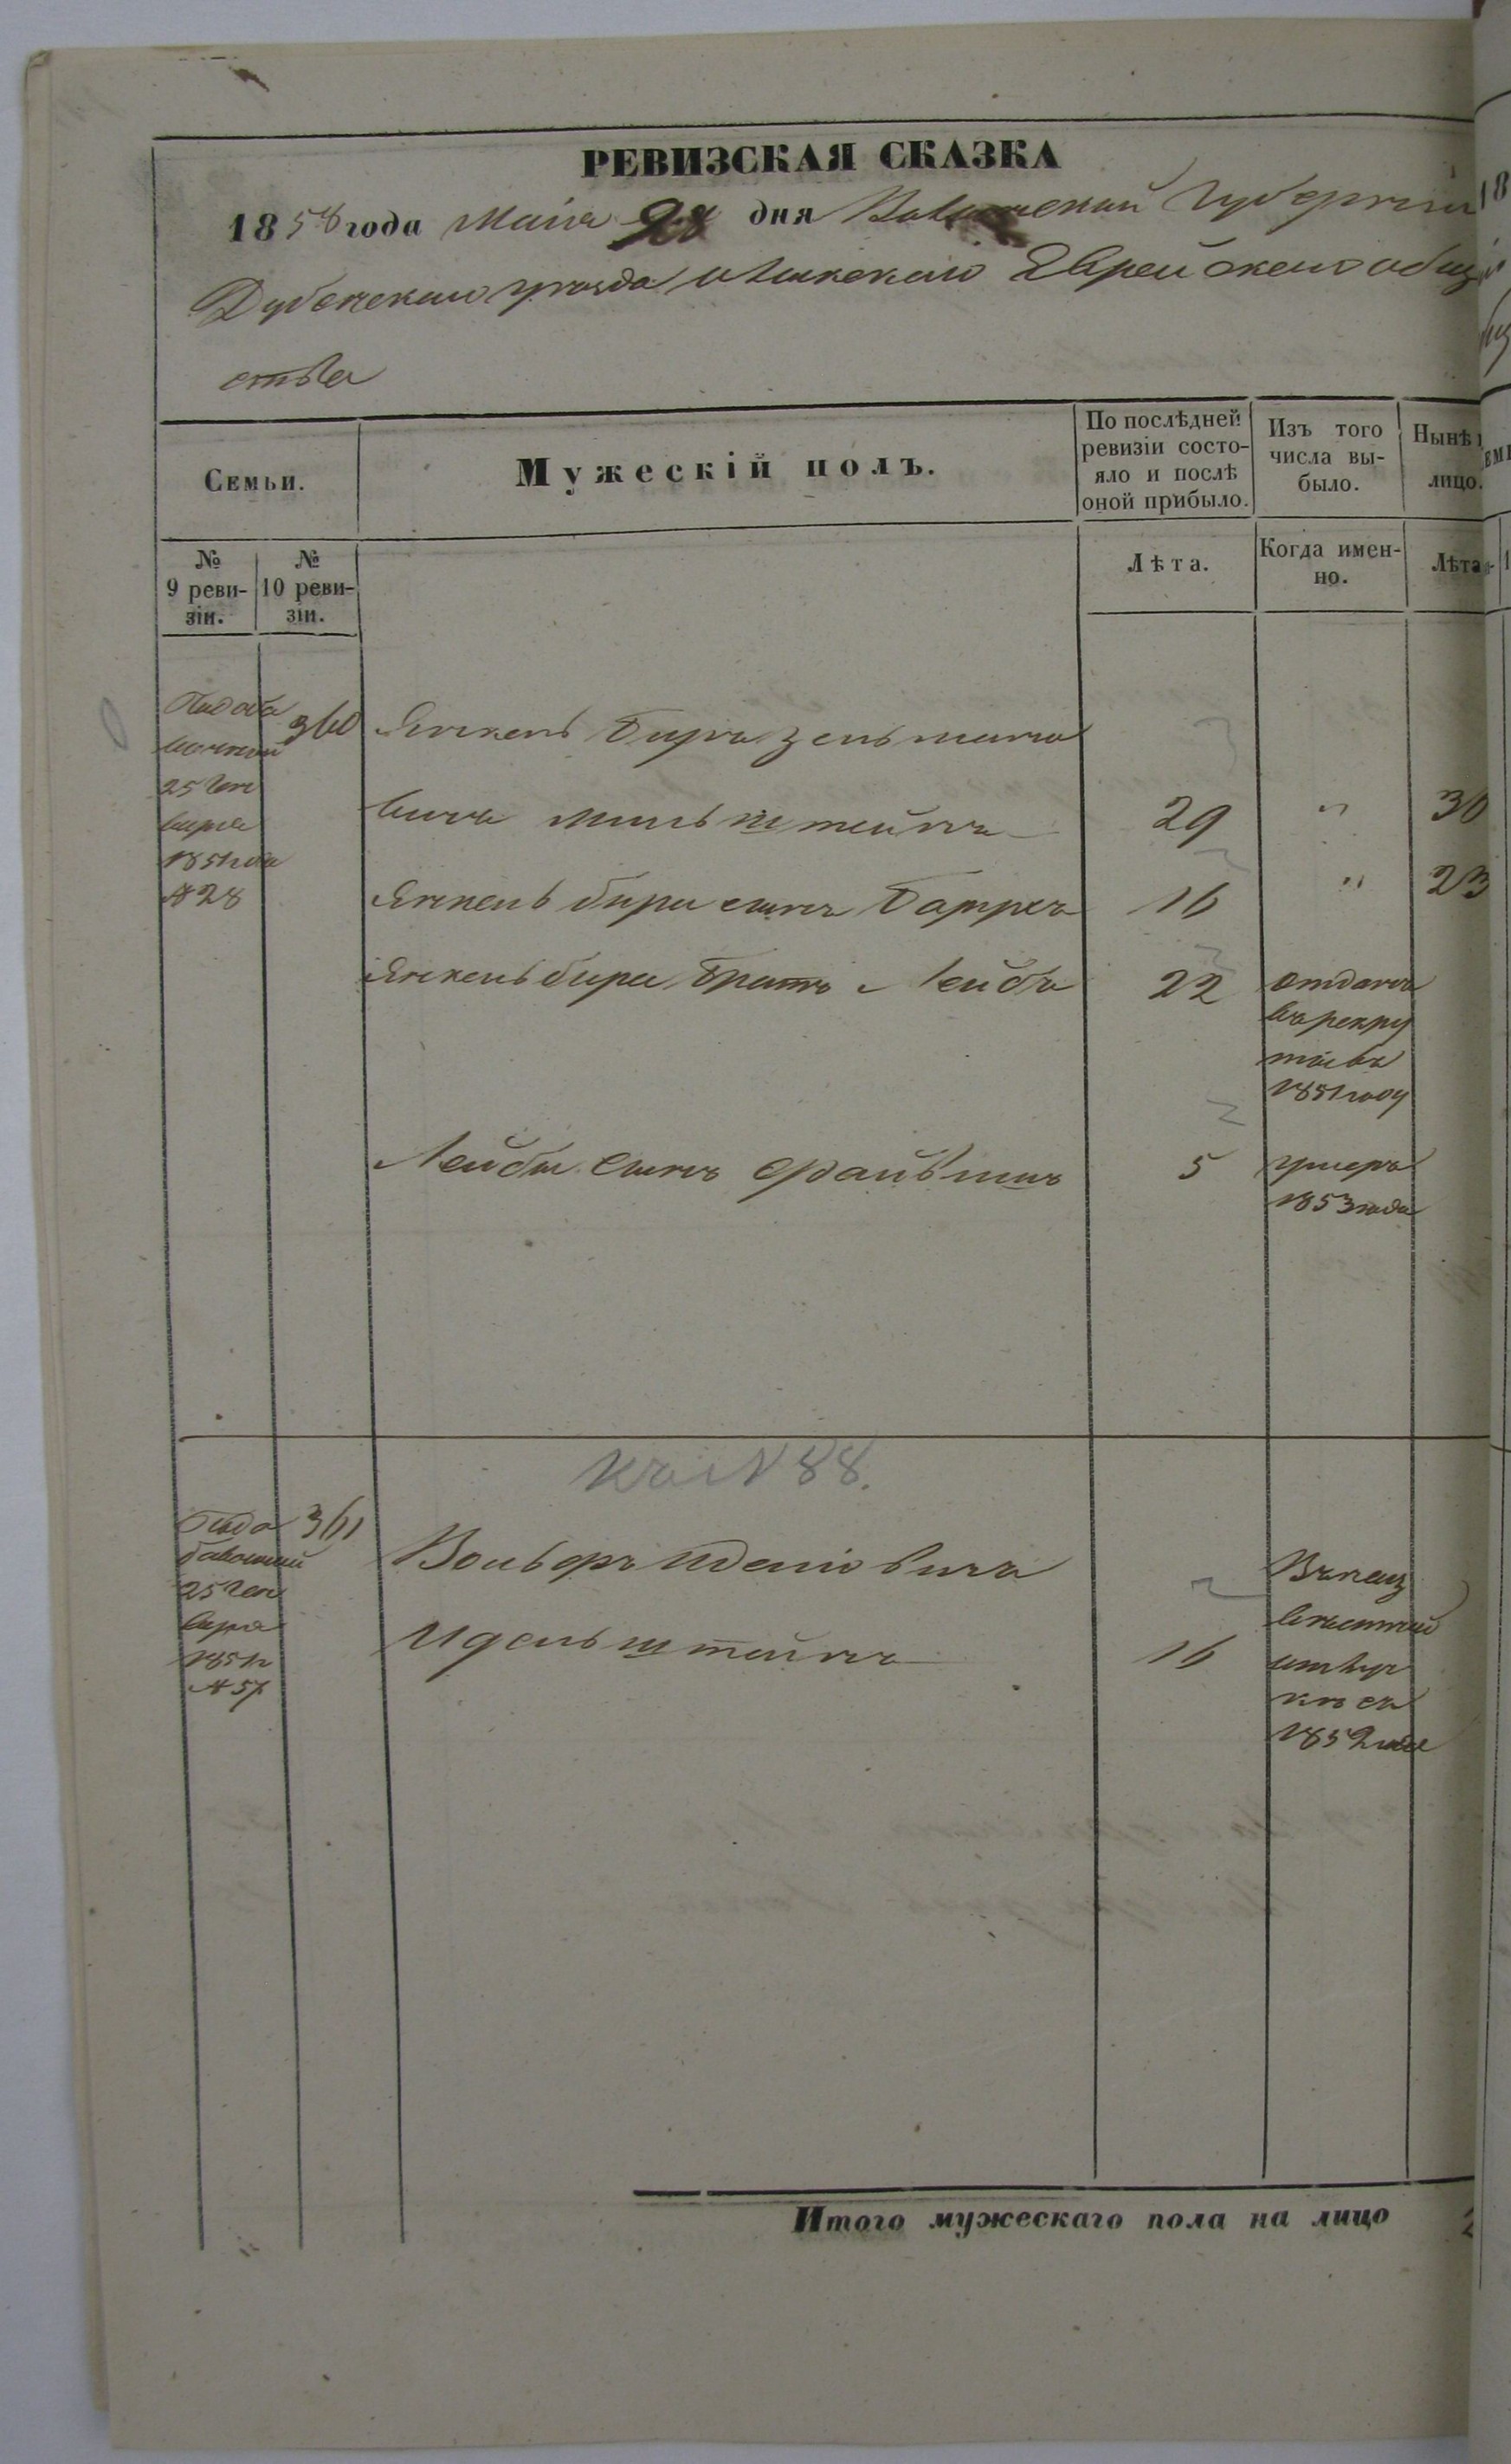 РЕВИЗСКАЯ СКАЗКА
1858 года Маія 28 дня Волынской Губерніи
Дубенскаго уѣзда Олыкскаго Еврейскаго обще
ства
Семьи.
Мужескій полъ.
По послѣдней ревизіи состо-
яло и послѣ
оной прибыло.
Изъ того
числа вы-
было.
Нынѣ
лицо.
№
9 реви-
зіи.
№
10 реви-
зіи.
Лѣта.
Когда имен-
но.
Лѣта
По доба
вочной
25 Ген
варя
1851 года
№ 28
360
Янкель Биръ Зельмано
вичъ Мильштейнъ 29 " 30
Янкель бира сынъ 16 " 23
Янкель бира братъ Лейба 22 отданъ
въ рекру
ты въ
1851 году
Лейбы сынъ Файвишъ 5 умеръ
1853 года
№ 88.
По до
бавочной
25 Ген
варя
1851
№ 57
361
Вольфъ Иделіовичъ
Идельштейнъ 16
отлуч
кѣ съ
1852 года
Итого мужескаго пола на лицо 2